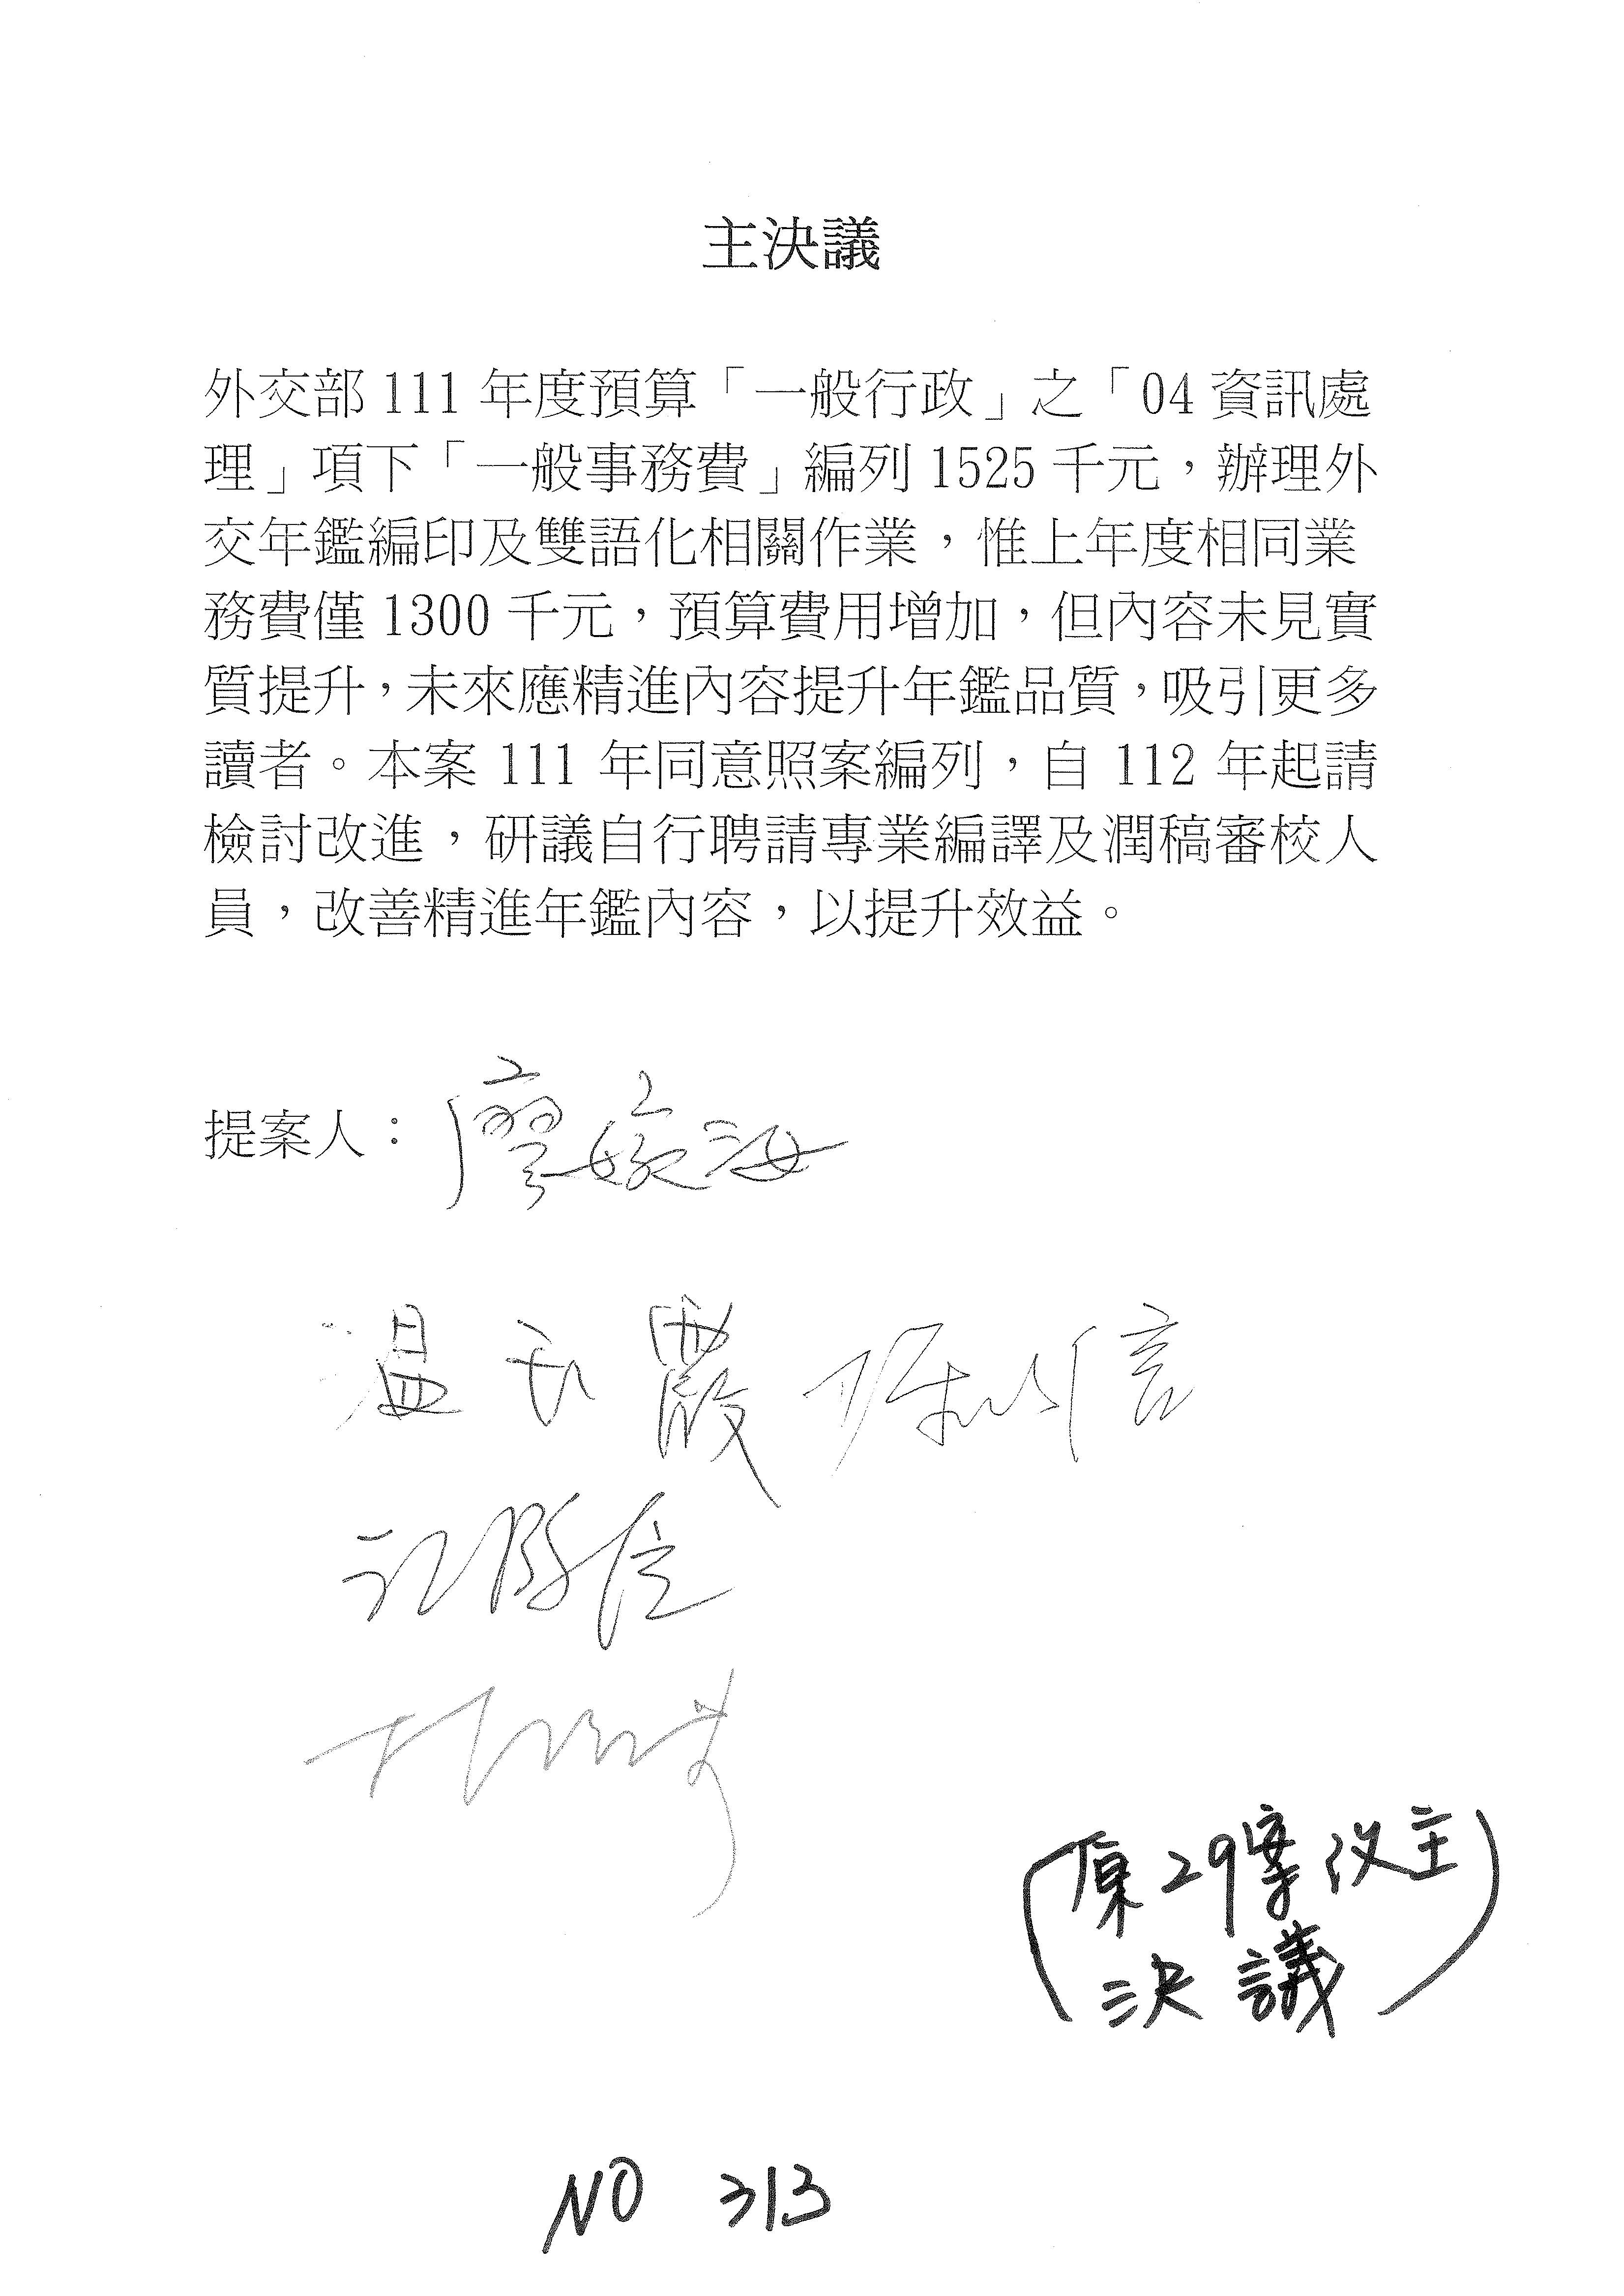 主決議
外交部 111 年度預算「一般行政」之「04 資訊處
理」項下「一般事務費」編列 1525 千元，辦理外
交年鑑編印及雙語化相關作業，惟上年度相同業
務費僅 1300 千元，預算費用增加，但內容未見實
質提升，未來應精進內容提升年鑑品質，吸引更多
讀者。本案 111 年同意照案編列，自 112 年起請
檢討改進，研議自行聘請專業編譯及潤稿審校人
員，改善精進年鑑內容，以提升效益。
提案人：廖婉汝
温玉霞 陳以信
(原29案改主
決議)
NO 313